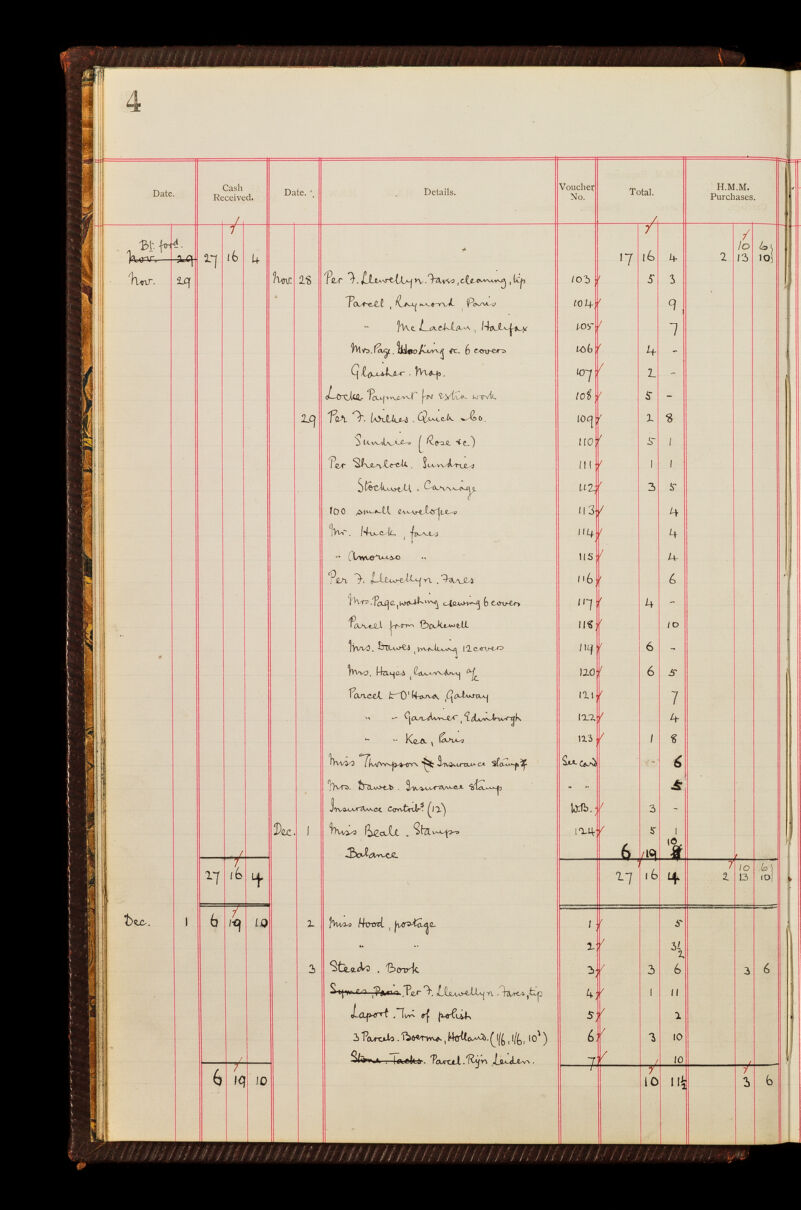 4
Date. Cash Received. Date. Details. Voucher No. Total. H.M.M. Purchases.
Bt. ford. 27 16 4 17 16 4 2 10/13 6/10
Nov. 29
Nov. 29 Nov. 28 Per F. Llewellyn. Fares, cleaning, tip 103 5 3
Parcel, Raymond, Paris 104 9
" McLachlan, Halifax 105 7
Mrs. Page. Washing etc. 6 covers 106 4 -
Glaisher. Map. 107 2 -
Locke Payment for extra work 108 5 -
29 Per F. Wilkes. Quick & Co. 109 2 8
Sundries (Rose etc.) 110 5 1
Per Sherlock. Sundries 111 1 1
Stockwell. Carriage 112 3 5
100 small envelopes 113 4
Mr. Huck, fares 114 4
" Amoruso " 115 4
Per F. Llewellyn. Fares 116 6
Mrs. Page, washing, sewing 6 covers 117 4 -
Parcel from Bakewell 118 10
Mrs. Dawes, making 12 covers 119 6 -
Mrs. Hayes, Laundry a/c 120 6 5
Parcel to O'Hara, Galway 121 7
" " Gardiner, Edinburgh 122 4
" " Kea, Paris 123 1 8
Miss Thompson Insurance stamp See Card - 6
Mrs. Dawes. Insurance stamp " " 5
Insurance Contribs (12) W.B. 3 -
Dec. 1 Miss Beale. Stamps 124 5 1
Balance 6 19 10
27 16 4 27 16 4 2 10/13 6/10
Dec. 1 6 19 10 2 Miss Hood, postage 1 5
" " 2 3½
3 Steeds. Book 3 3 6 3 6
Symes Paris. Per F. Llewellyn. Fares, tip 4 1 11
Laport. Tin of polish 5 2
3 Parcels. Boerma, Holland. (1/6, 1/6, 10d) 6 3 10
Stone. Tacks. Parcel. Rijn Leiden. 7 10
6 19 10 10 11½ 3 6